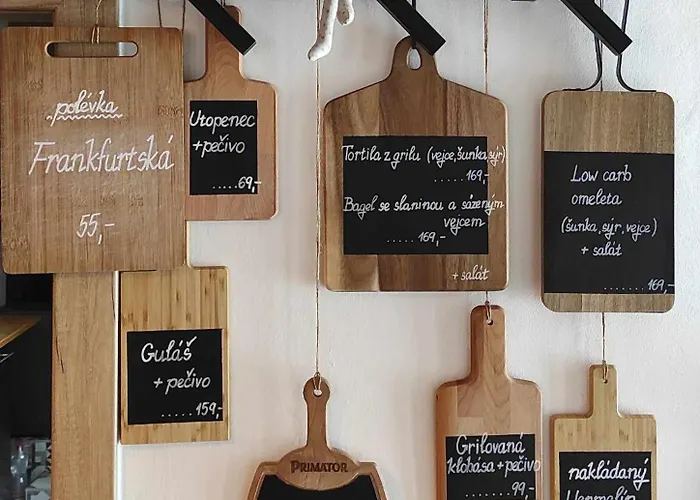 polévka
Frankfurtská
55,-
Utopenec
+pečivo
.....69,-
Tortila z grilu (vejce,šunka,sýr)
.....169,-
Bagel se slaninou a sázeným
vejcem
.....169,-
+ salát
Low carb
omeleta
(šunka, sýr, vejce)
+ salát
.......169,-
Guláš
+ pečivo
.....159,-
PRIMATOR
Grilovaná
klobása+pečivo
......99,-
nakládaný